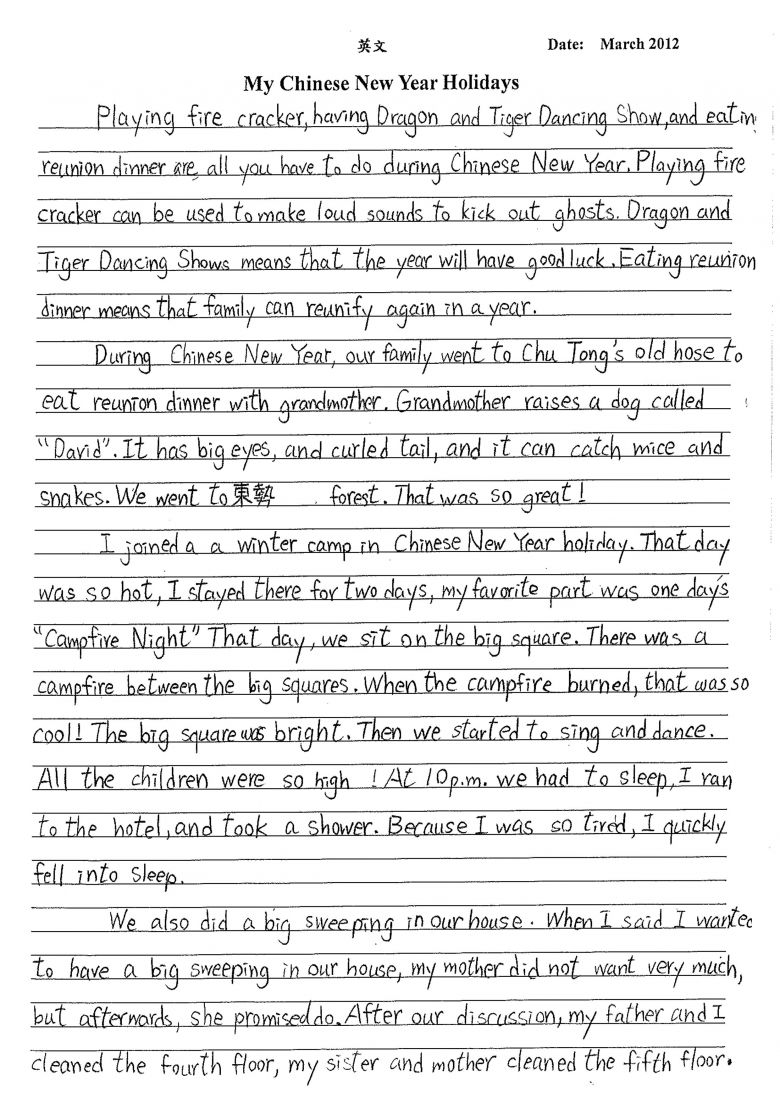 英文
Date: March 2012
My Chinese New Year Holidays
Playing fire cracker, having Dragon and Tiger Dancing Show, and eatin
reunion dinner are all you have to do during Chinese New Year. Playing fire
cracker can be used to make loud sounds to kick out ghosts. Dragon and
Tiger Dancing Shows means that the year will have good luck. Eating reunion
dinner means that family can reunify again in a year.
During Chinese New Year, our family went to Chu Tong's old hose to
eat reunion dinner with grandmother. Grandmother raises a dog called
"David". It has big eyes, and curled tail, and it can catch mice and
snakes. We went to 東勢 forest. That was so great!
I joined a a winter camp in Chinese New Year holiday. That day
was so hot, I stayed there for two days, my favorite part was one day's
"Campfire Night" That day, we sit on the big square. There was a
campfire between the big squares. When the campfire burned, that was so
cool! The big square was bright. Then we started to sing and dance.
All the children were so high ! At 10 p.m. we had to sleep, I ran
to the hotel, and took a shower. Because I was so tired, I quickly
fell into sleep.
We also did a big sweeping in our house. When I said I wanted
to have a big sweeping in our house, my mother did not want very much,
but afterwards, she promised do. After our discussion, my father and I
cleaned the fourth floor, my sister and mother cleaned the fifth floor.